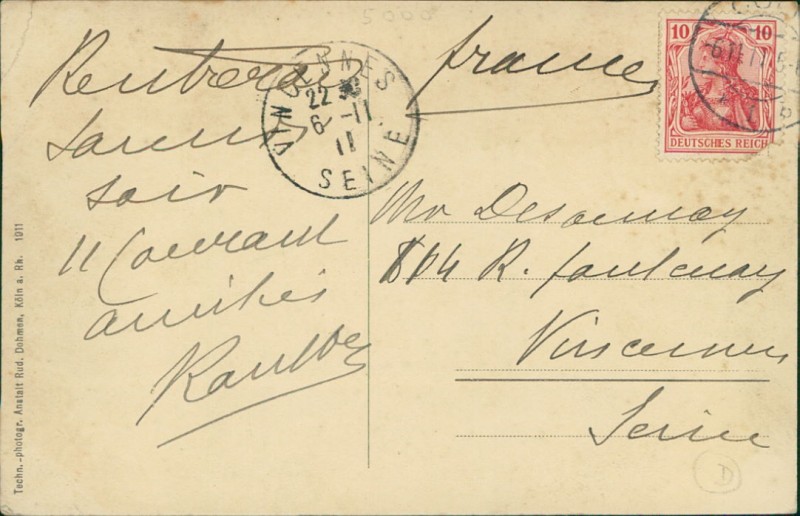 5000
Rentrerai
samedi
soir
11 Courant
amitiés
france
VINCENNES
22 30
6 -11
11
SEINE
10 10
DEUTSCHES REICH
Mr Desaunay
R. fontenay
Vincennes
Seine
D
Techn.-photogr. Anstalt Rud. Dohmen, Köln a. Rh. 1911